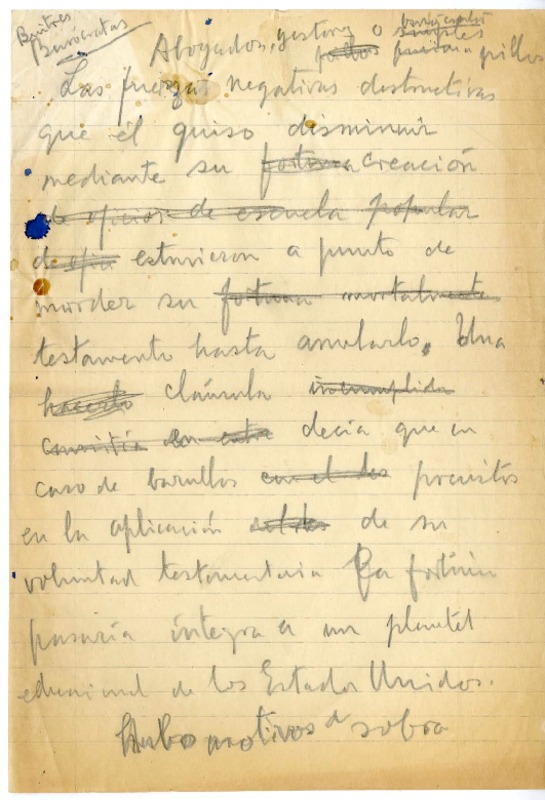 Buitres
Burócratas
Abogados, gestores o
burócratas
simples
pillos
Las fuerzas negativas destructivas
que él quiso disminuir
mediante su fortuna creación
de oficios de escuela popular
de ofic estuvieron a punto de
morder su fortuna mortalmente
testamento hasta anularlo. Una
hacerlo cláusula incumplida
consistía en esta decía que en
caso de barullos con el des previstos
en la aplicación de su
voluntad testamentaria la fortuna
pasaría íntegra a un plantel
educacional de los Estados Unidos.
Hubo motivos d sobra